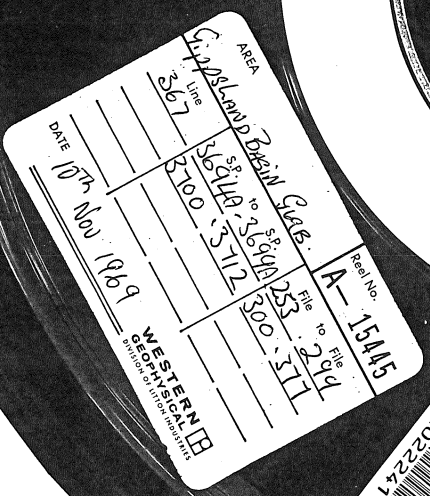 AREA
Gippsland Basin
Reel No.
A- 15445
Line S.P. to S.P. File to File
367 3694A. 3694A 253. 299
3700. 3712 300. 377
DATE 10th Nov 1969
WESTERN
GEOPHYSICAL
DIVISION OF LITTON INDUSTRIES
022224